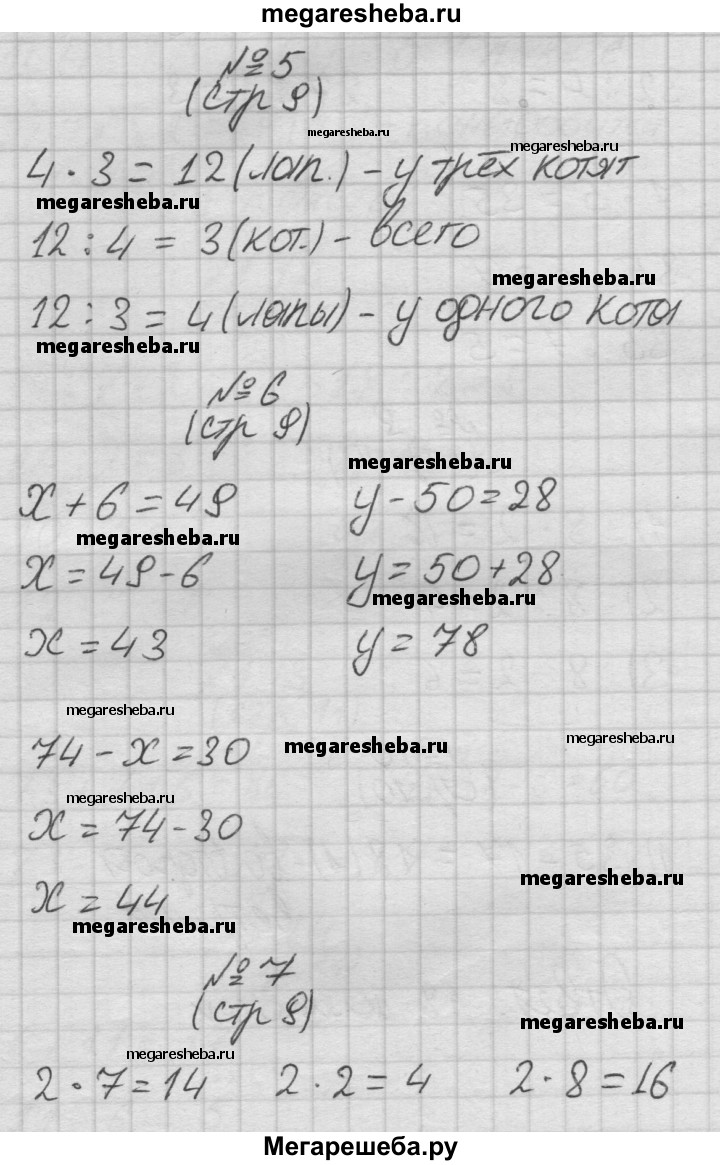 megaresheba.ru
№5
(стр 9)
megaresheba.ru
megaresheba.ru
4 · 3 = 12 (лап.) - у трёх котят
megaresheba.ru
12 : 4 = 3 (кот.) - всего
megaresheba.ru
12 : 3 = 4 (лапы) - у одного кота
megaresheba.ru
№6
(стр 9)
megaresheba.ru
x + 6 = 49 y - 50 = 28
megaresheba.ru
x = 49 - 6 y = 50 + 28
megaresheba.ru
x = 43 y = 78
megaresheba.ru
megaresheba.ru
74 - x = 30 megaresheba.ru
megaresheba.ru
x = 74 - 30
megaresheba.ru
x = 44
megaresheba.ru
№7
(стр 9)
megaresheba.ru
megaresheba.ru
2 · 7 = 14 2 · 2 = 4 2 · 8 = 16
Мегарешеба.ру